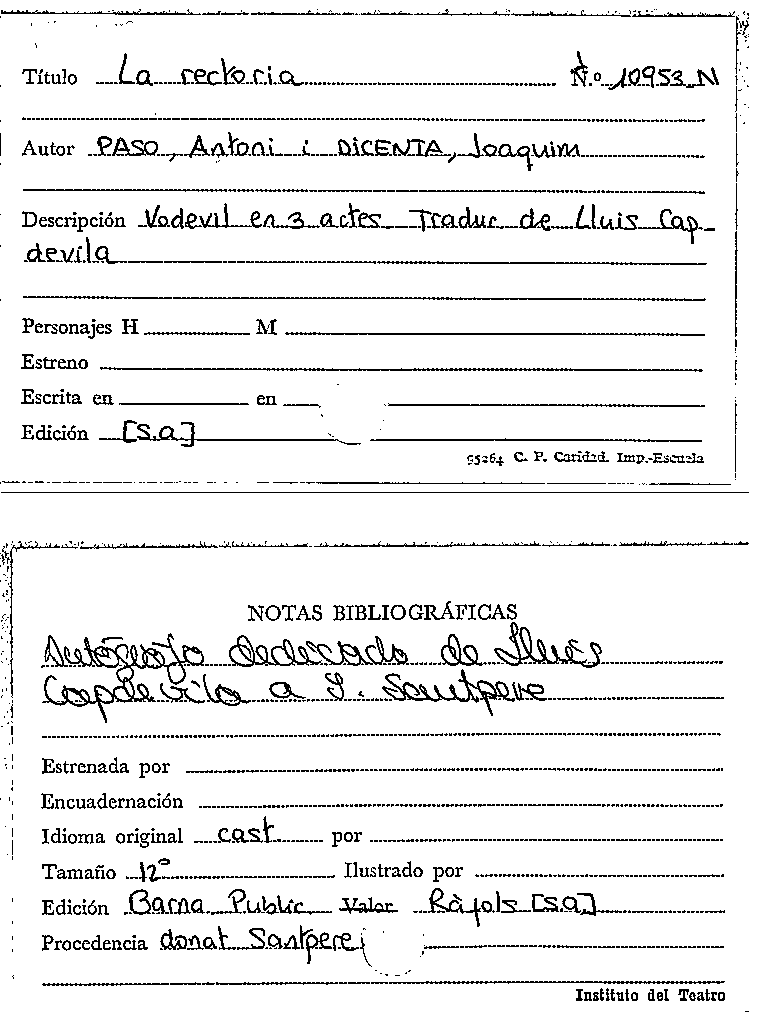 Título La rectoria N.o 10953 N
Autor PASO, Antoni i DICENTA, Joaquim
Descripción Vodevil en 3 actes Traduc de Lluis Cap-
devila
Personajes H M
Estreno
Escrita en en
Edición [S.a]
95264 C. P. Caridad. Imp.-Escuela
NOTAS BIBLIOGRÁFICAS
Autógrafo dedicado de Lluis
Capdevila a J. Santpere
Estrenada por
Encuadernación
Idioma original cast por
Tamaño 12º Ilustrado por
Edición Barna Public. Valor Ràfols [s.a]
Procedencia donat Santpere
Instituto del Teatro